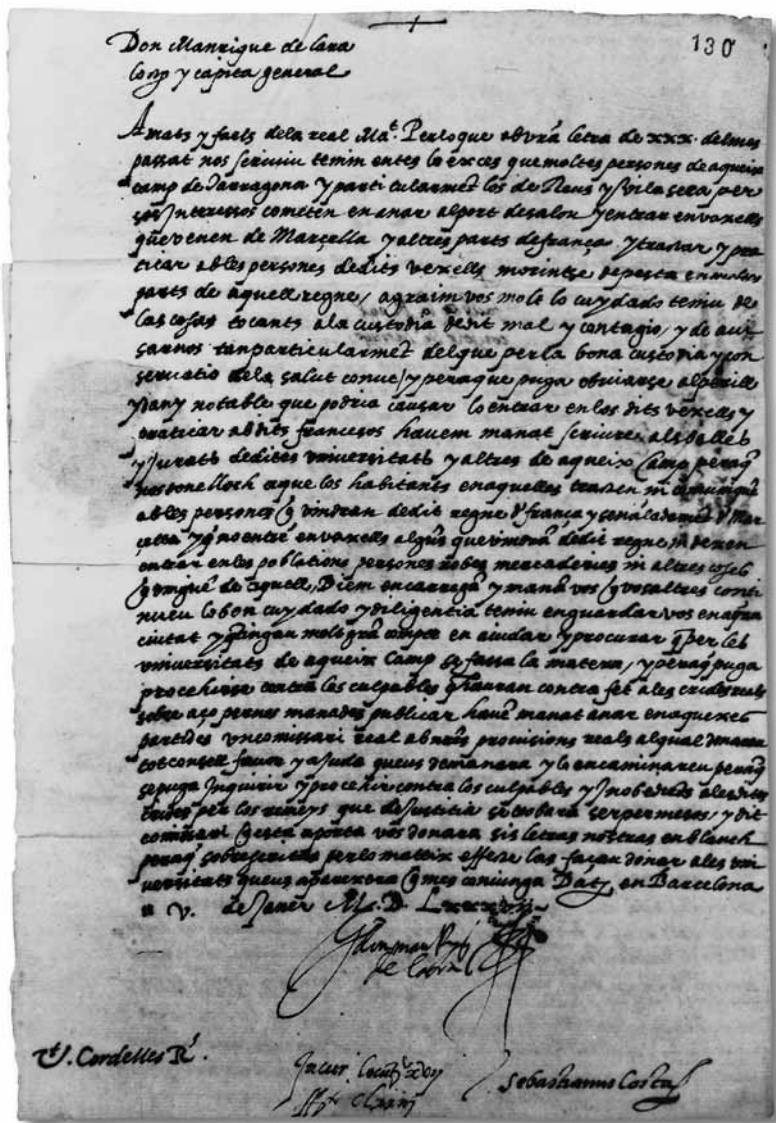 130
Don Manrique de Lara
loct.t y capita general
Amats y faels dela real Ma.t Per lo que ab vrã letra de xxx. del mes
passat nos scriviu tenim entes lo exces que moltes persones de aqueix
camp de Tarragona y particularmēt los de Reus y vilaseca per
sos Interessos cometen en anar al port de salou y entrar en vaxells
que venen de Marcella y altres parts de frança y tractar y pra
ticar ab les persones de dits vexells morintse de pesta en moltes
parts de aquell regne / agraim vos molt lo cuydado teniu de
las cosas tocants a la custodia de dit mal y contagio / y de avi
sarnos tan particularmēt del que per la bona custodia y con
servatio de la salut conve / y pera que puga obviarse al perill
y dany notable que podria causar lo entrar en los dits vexells y
praticar ab dits francesos havem manat scriure als balles
y Jurats de dites universitats y altres de aqueix Camp peraq̃
no s done lloch a que los habitants en aquelles tracten ni comuniquē
ab les persones q̃ vindran de dit regne d frança y senaladamēt d Mar
cella y q̃ no entrē en vaxells algũs que vinguā de dit regne ni dexen
entrar en les poblations persones robes mercaderies ni altres coses
q̃ vinguē de aquell, Diem encarregā y manā vos q̃ vosaltres conti
nueu lo bon cuydado y diligentia teniu en guardar vos en aq̃xa
ciutat y q̃ tingau molt grā compte en aiudar y procurar q̃ per les
universitats de aqueix Camp se fassa la matexa / y peraq̃ puga
procehirse contra los culpables q̃ hauran contrafet a les crides reals
sobre aço per nos manades publicar havē manat anar en aquexes
partides un comissari real ab nr̃es provisions reals al qual donareu
tot consell favor y ajuda que us demanara y lo encaminareu peraq̃
se puga Inquirir y procehir contra los culpables y Inobedients a les dites
crides per los remeys que de Justicia se trobara ser permesos / y dit
comissari q̃ esta aporta vos donara sis letras nostras en blanch
peraq̃ sobrescrites per lo mateix effecte las façau donar a les uni
versitats que us aparexera q̃ mes convinga Dat.s en Barcelona
a v. de Jener M.D. Lxxxvij
don manrriq
de lara
V.t J. Cordelles R.s
Sebastianus Costa